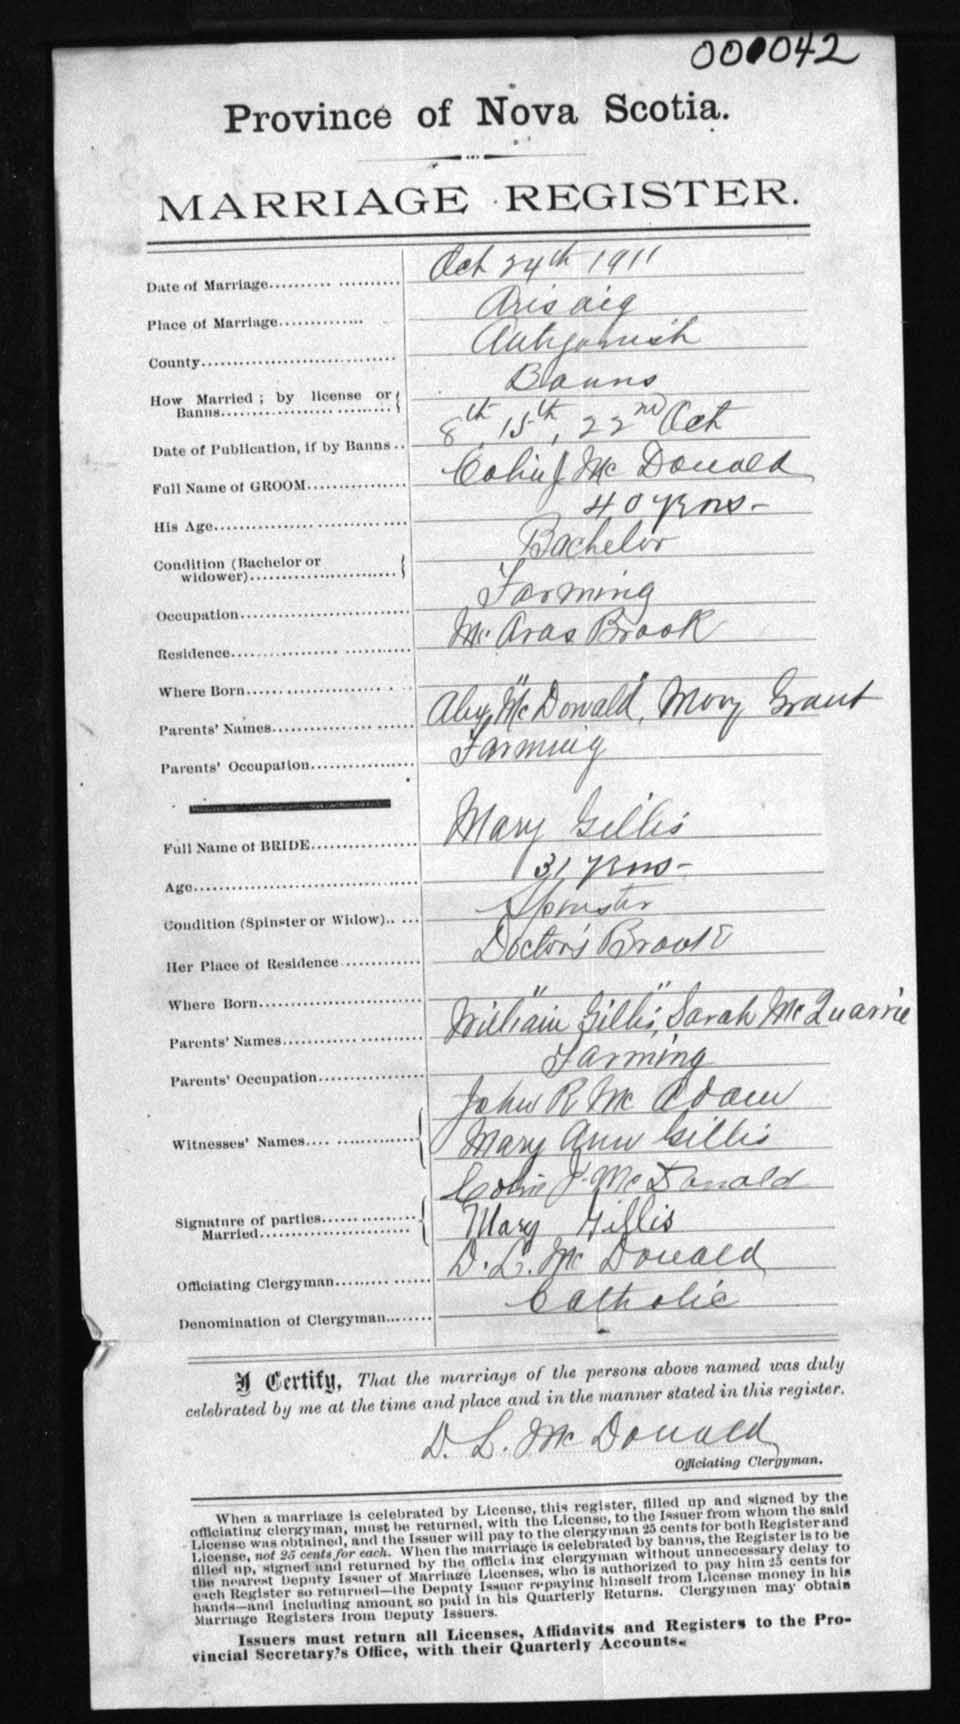 000042
Province of Nova Scotia.
MARRIAGE REGISTER.
Date of Marriage.......... Oct 24th 1911
Place of Marriage............. Arisaig
County.............................. Antigonish
How Married ; by license or Banns.......... Banns
Date of Publication, if by Banns .. 8th, 15th, 22nd Oct
Full Name of GROOM............... Colin J Mc Donald
His Age.............................. 40 yrs-
Condition (Bachelor or widower)...................... Bachelor
Occupation.......................... Farming
Residence.......................... Mc Aras Brook
Where Born.......................... "            "
Parents' Names..................... Alex Mc Donald, Mary Grant
Parents' Occupation................ Farming
Full Name of BRIDE................ Mary Gillis
Age.................................. 31 yrs-
Condition (Spinster or Widow)..... Spinster
Her Place of Residence............ Doctor's Brook
Where Born.......................... "            "
Parents' Names..................... William Gillis, Sarah Mc Quarrie
Parents' Occupation................ Farming
Witnesses' Names.... John R Mc Adam
Mary Ann Gillis
Signature of parties Married................ Colin J. McDonald
Mary Gillis
Officiating Clergyman.............. D. L. Mc Donald
Denomination of Clergyman........ Catholic
I Certify, That the marriage of the persons above named was duly
celebrated by me at the time and place and in the manner stated in this register.
D. L. Mc Donald
Officiating Clergyman.
When a marriage is celebrated by License, this register, filled up and signed by the
officiating clergyman, must be returned, with the License, to the Issuer from whom the said
License was obtained, and the Issuer will pay to the clergyman 25 cents for both Register and
License, not 25 cents for each. When the marriage is celebrated by banns, the Register is to be
filled up, signed and returned by the officia ing clergyman without unnecessary delay to
the nearest Deputy Issuer of Marriage Licenses, who is authorized to pay him 25 cents for
each Register so returned—the Deputy Issuer repaying himself from License money in his
hands—and including amount so paid in his Quarterly Returns. Clergymen may obtain
Marriage Registers from Deputy Issuers.
Issuers must return all Licenses, Affidavits and Registers to the Pro-
vincial Secretary's Office, with their Quarterly Accounts.